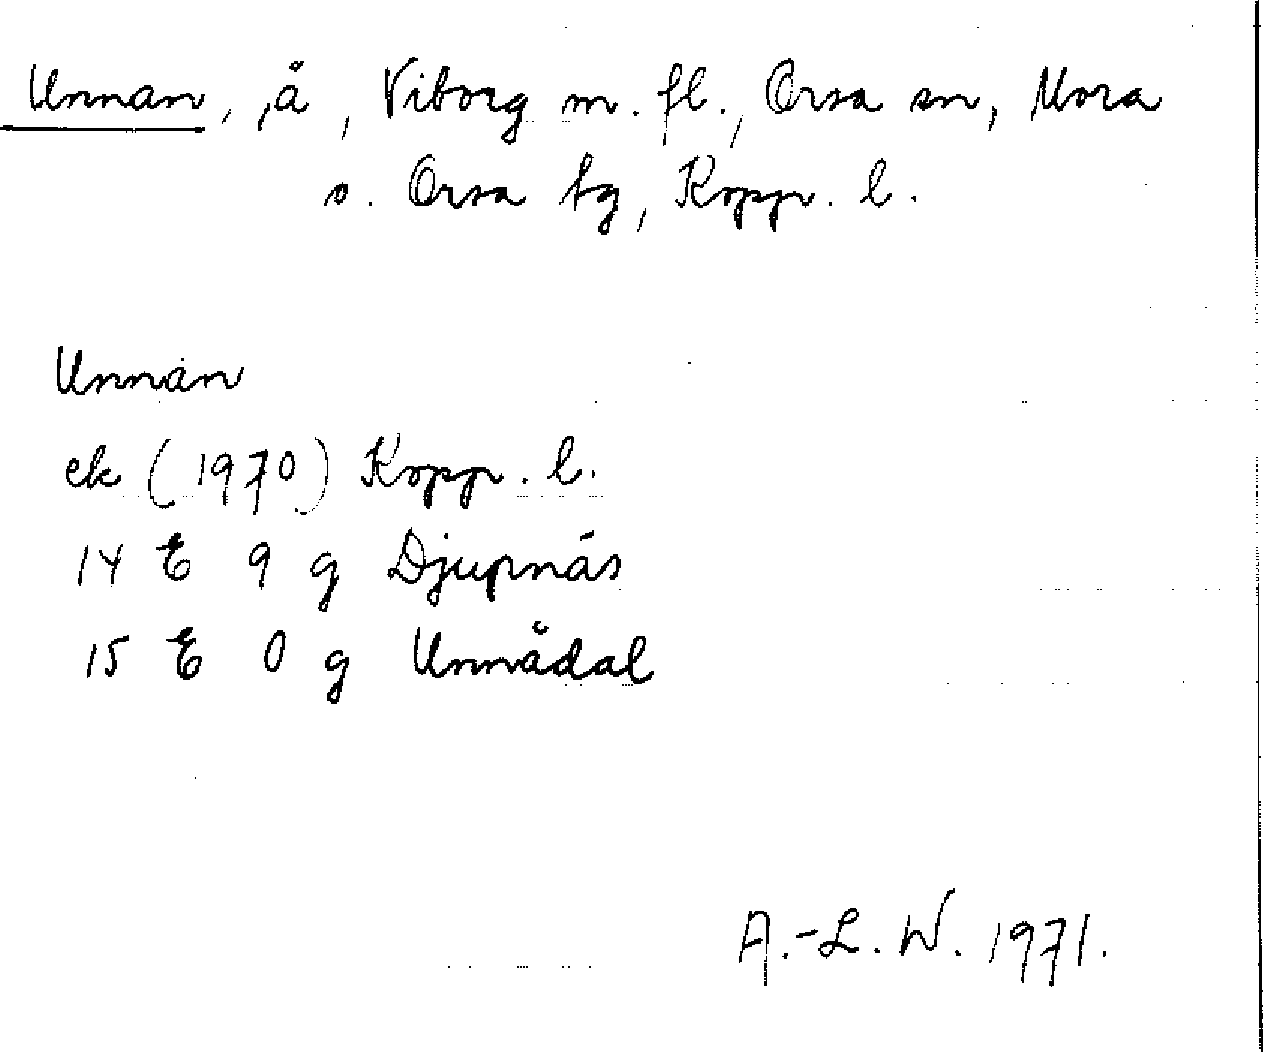 Unnan, å, Viborg m. fl., Orsa sn, Mora
o. Orsa tg, Kopp. l.
Unnån
ek (1970) Kopp. l.
14 E 9 g Djupnäs
15 E 0 g Unnådal
A.-L. W. 1971.